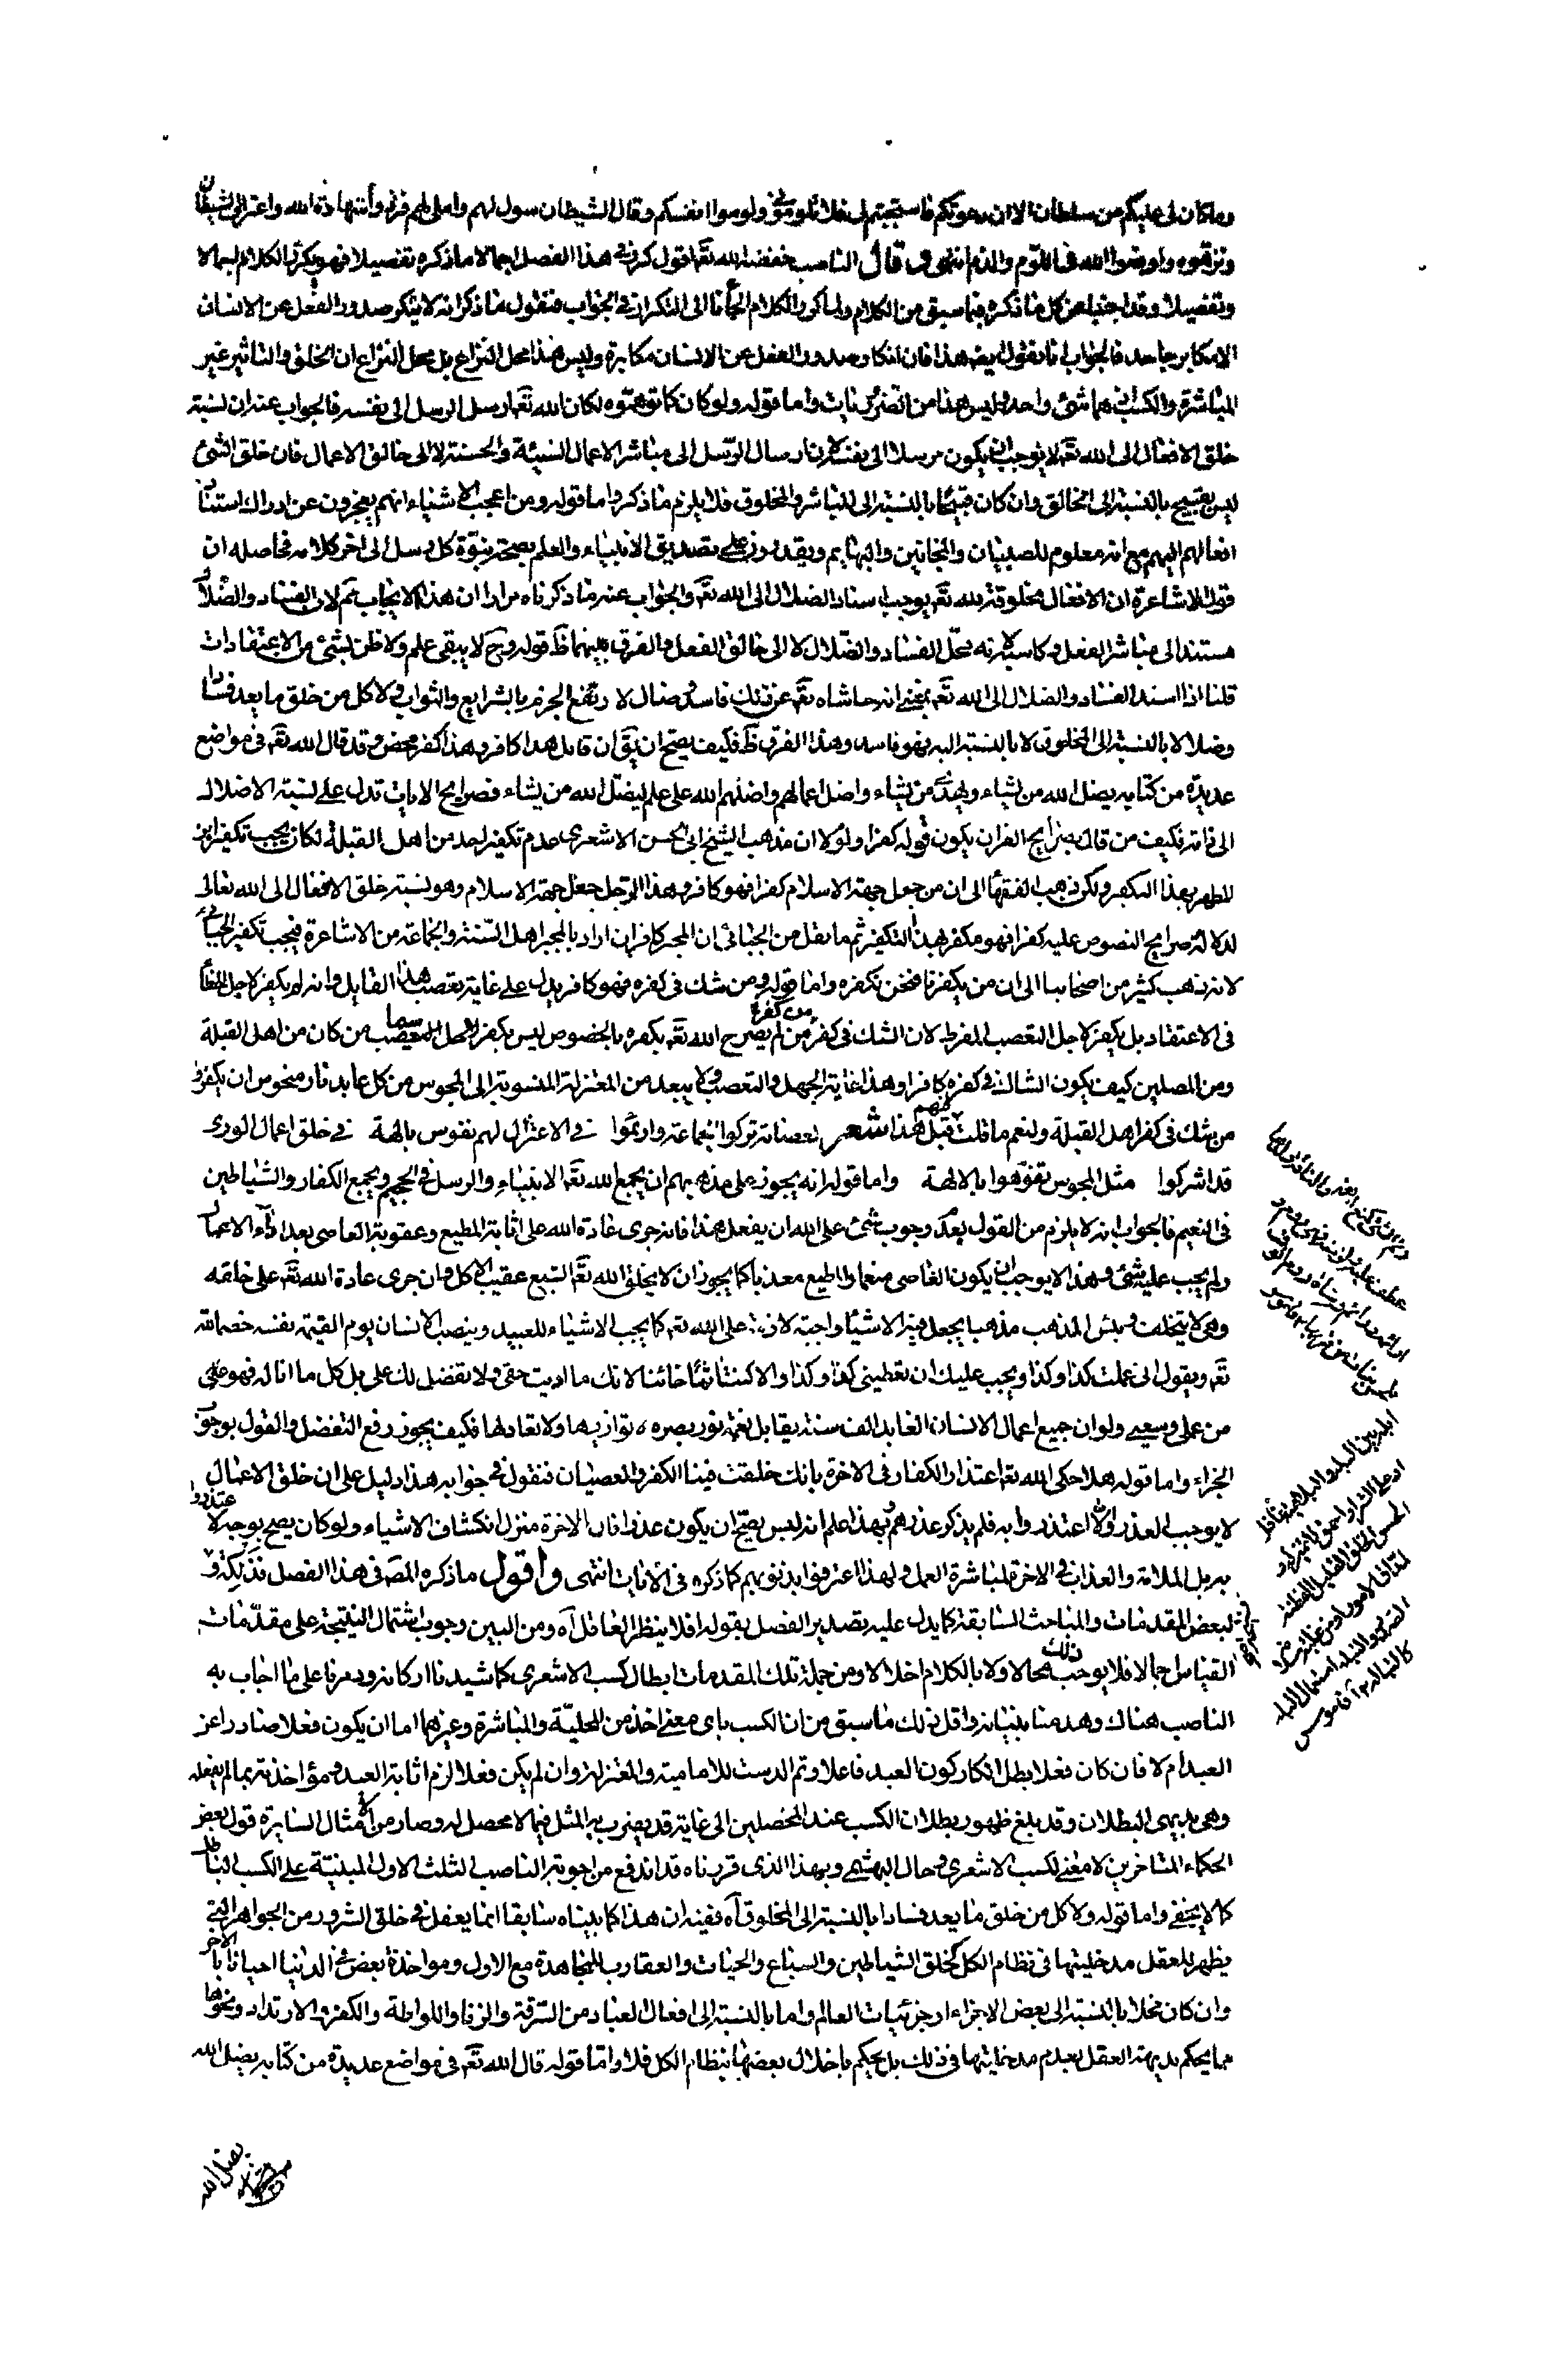 وما كان لى عليكم من سلطان الا ان دعوتكم فاستجبتم لى فلا تلومونى ولوموا انفسكم وقال الشيطان سول لهم واملى لهم فزه وأنتهادة الله واعترا الشيطان
ونزهوه واوضوا الله فى اللوم والذم انتهى قال الناصب خفضه الله تعـ اقول كرر فى هذا الفصل اجمالا ما ذكره تفصيلا فهو يكرر الكلام اجمالا
وتفصيلا وقد اجبنا عن كل ما ذكره فيما سبق من الكلام ولما كرر الكلام الجأنا الى التكرار فى الجواب فنقول ما ذكر انه لا ينكر صدور الفعل عن الانسان
الا مكابر جاحد فالجواب انا نقول ايضه هذا فان انكار صدور الفعل عن الانسان مكابرة وليس هذا محل النزاع بل محل النزاع ان الخلق والتاثير غير
المباشرة والكسب او هما شئ واحد وليس هذا من الضروريات واما قوله ولو كان كما توهموه لكان الله تعـ ارسل الرسل الى نفسه فالجواب عنه ان نسبة
خلق الافعال الى الله تعـ لا يوجب ان يكون مرسلا الى نفسه لان ارسال الرسل الى مباشر الاعمال السيئة والحسنة لا الى خالق الاعمال فان خلق الشئ
ليس بقبيح بالنسبة الى الخالق وان كان قبيحا بالنسبة الى المباشر والمخلوق فلا يلزم ما ذكر واما قوله ومن اعجب الاشياء انهم يعجزون عن ادراك استناد
افعالهم اليهم مع انه معلوم للصبيان والمجانين والبهايم ويقدرون على تصديق الانبياء والعلم بصحة نبوة كل رسل الى اخر كلامه فحاصله ان
قول الاشاعرة ان الافعال مخلوقة لله تعـ يوجب اسناد الضلال الى الله تعـ والجواب عنه ما ذكرناه مرارا ان هذا الايجاب مم لان الفساد والضلال
مستند الى مباشر الفعل وكاسبه لانه محل الفساد والضلال لا الى خالق الفعل والفرق بينهما ظ قوله وح لا يبقى علم ولا ظن بشئ من الاعتقادات
قلنا اذا اسند الفساد والضلال الى الله تعـ بمعنى انه حاشاه تعـ عن ذلك فاسد وضال لا رتفع الجزم بالشرايع والثواب ولا كل من خلق ما يعد فسادا
وضلالا بالنسبة الى المخلوق لا بالنسبة اليه فهو فاسد وهذا الفرق ظ فكيف يصح ان يق ان قايل هذا كافر وهذا كفر محض وقد قال الله تعـ فى مواضع
عديدة من كتابه يضل الله من يشاء ويهدى من يشاء واضل اعمالهم واضلهم الله على علم ليضل الله من يشاء فصرايح الايات تدل على نسبة الاضلال
الى ذاته فكيف من قال بصرايح القران يكون قوله كفرا ولولا ان مذهب الشيخ ابى الحسن الاشعرى عدم تكفير احد من اهل القبلة لكان يجب تكفير ابن
المطهر بهذا التكفير ولكن ذهب الفقهاء الى ان من جعل جهة الاسلام كفرا فهو كافر وهذا الرجل جعل جهة الاسلام وهو نسبة خلق الافعال الى الله تعالى
لدلالة صرايح النصوص عليه كفرا فهو مكفر بهذا التكفير ثم ما نقل من الجبائى ان المجبر كافر ان اراد بالمجبر اهل السنة والجماعة من الاشاعرة فيجب تكفير الجبائى
لانه ذهب كثير من اصحابنا الى ان من يكفرنا فنحن نكفره واما قوله ومن شك فى كفره فهو كافر يدل على غاية تعصب هذا القايل وانه لم يكفر لاجل الخطأ
فى الاعتقاد بل يكفر لاجل التعصب المفرط لان الشك فى كفر من لم يصرح الله تعـ بكفره بالخصوص ليس بكفر لاهل التعصب سيما من كان من اهل القبلة
ومن المصلين كيف يكون الشاك فى كفره كافرا وهذا غاية الجهل والتعصب ولا يبعد من المعتزلة المنسوبة الى المجوس من كل عابد نار منحوس ان يكفروا
من شك فى كفر اهل القبلة ولنعم ما قلت فيهم قبل هذا شعر لعصابة تركوا الجماعة وارتموا فى الاعتزال لهم نفوس بالهة فى خلق اعمال الورى
قد اشركوا مثل المجوس تفوهوا بالالهة واما قوله انه يجوز على مذهبهم ان يجمع الله تعـ الانبياء والرسل فى الجحيم ويجمع الكفار والشياطين
فى النعيم فالجواب انه لا يلزم من القول بعدم وجوب شئ على الله ان يفعل هذا فانه جرى عادة الله على اثابة المطيع وعقوبة العاصى بعد اداء الاعمال
ولم يجب عليه شئ وهذا لا يوجب ان يكون العاصى منعما والمطيع معذبا كما يجوز ان لا يخلق الله تعـ الشبع عقيب الاكل وان جرى عادة الله تعـ على خلقه
وهى لا يتخلف وبئس المذهب مذهبا يجعل فيه الاشياء واجبة لازمة على الله تعـ كما يجب الاشياء للعبيد وينصب الانسان يوم القيمة نفسه خصما لله
تعـ ويقول الى عملت كذا وكذا ويجب عليك ان تعطينى كذا وكذا والا كنت خائنا لانك ما اديت حقى ولا تفضل لك على بل كل ما اناله فهو
من عملى وسعيى ولو ان جميع اعمال الانسان العابد الف سنة يقابل نعمة نور بصره لا توازيها ولا تعادلها فكيف يجوز رفع التفضل والقول بوجوب
الجزاء واما قوله هذا حكى الله تعـ اعتذار الكفار فى الاخرة بانك خلقت فينا الكفر والعصيان فنقول فى جوابه هذا دليل على ان خلق الاعمال
لا يوجب العذر والا اعتذروا به فلم يذكر عذرهم بهذا علم انه ليس يصح ان يكون عذرا فان الاخرة منزل انكشاف الاشياء ولو كان يصح بوجه لاعتذروا
به بل الملامة والعذاب فى الاخرة لمباشرة العمل ولهذا اعترفوا بذنوبهم كما ذكره فى الايات انتهى واقول ما ذكره المصـ فى هذا الفصل فذلكة و
لبعض المقدمات والمباحث السابقة كما يدل عليه تصدير الفصل بقوله افلا ينظر العاقل آه ومن البين وجوب اشتمال النتيجة على مقدمات
القياس اجمالا فلا يوجب ذلك محالا ولا بالكلام اخلالا ومن جملة تلك المقدمات ابطال كسب الاشعرى كما شيدنا اركانه ودمرنا على ما اجاب به
الناصب هناك وهدمنا بنيانه واقل ذلك ما سبق من ان الكسب باى معنى اخذ من المحلية والمباشرة وغيرهما اما ان يكون فعلا صادرا عن
العبد ام لا فان كان فعلا بطل انكار كون العبد فاعلا وتم الدست للامامية والمعتزلة وان لم يكن فعلا لزم اثابة العبد ومؤاخذته بما لم يفعله
وهى بديهى البطلان وقد بلغ ظهور بطلان الكسب عند المحصلين الى غاية قد يضرب به المثل فيما لا محصل له وصار من الامثال السايرة قول بعض
الحكماء المتاخرين لا معنى لكسب الاشعرى وحال البهشمى وبهذا الذى قررناه قد اندفع من اجوبة الناصب الثلث الاول المبنية على الكسب الباطل
كما لا يخفى واما قوله ولا كل من خلق ما يعد فسادا بالنسبة الى المخلوق آه ففيه ان هذا كما بيناه سابقا انما يعقل فى خلق الشرور من الجواهر التى
يظهر للعقل مدخليتها فى نظام الكل كخلق الشياطين والسباع والحيات والعقارب للمجاهدة مع الاول ومواخذة بعض فى الدنيا احيانا بالاخر
وان كان مخلا بالنسبة الى بعض الاجزاء او جزئيات العالم واما بالنسبة الى افعال العباد من السرقة والزنا واللواطة والكفر والارتداد ونحوها
مما يحكم بديهة العقل بعدم مدخليتها فى ذلك بل يحكم باخلال بعضها بنظام الكل فلا واما قوله قال الله تعـ فى مواضع عديدة من كتابه يضل الله
يضل الله